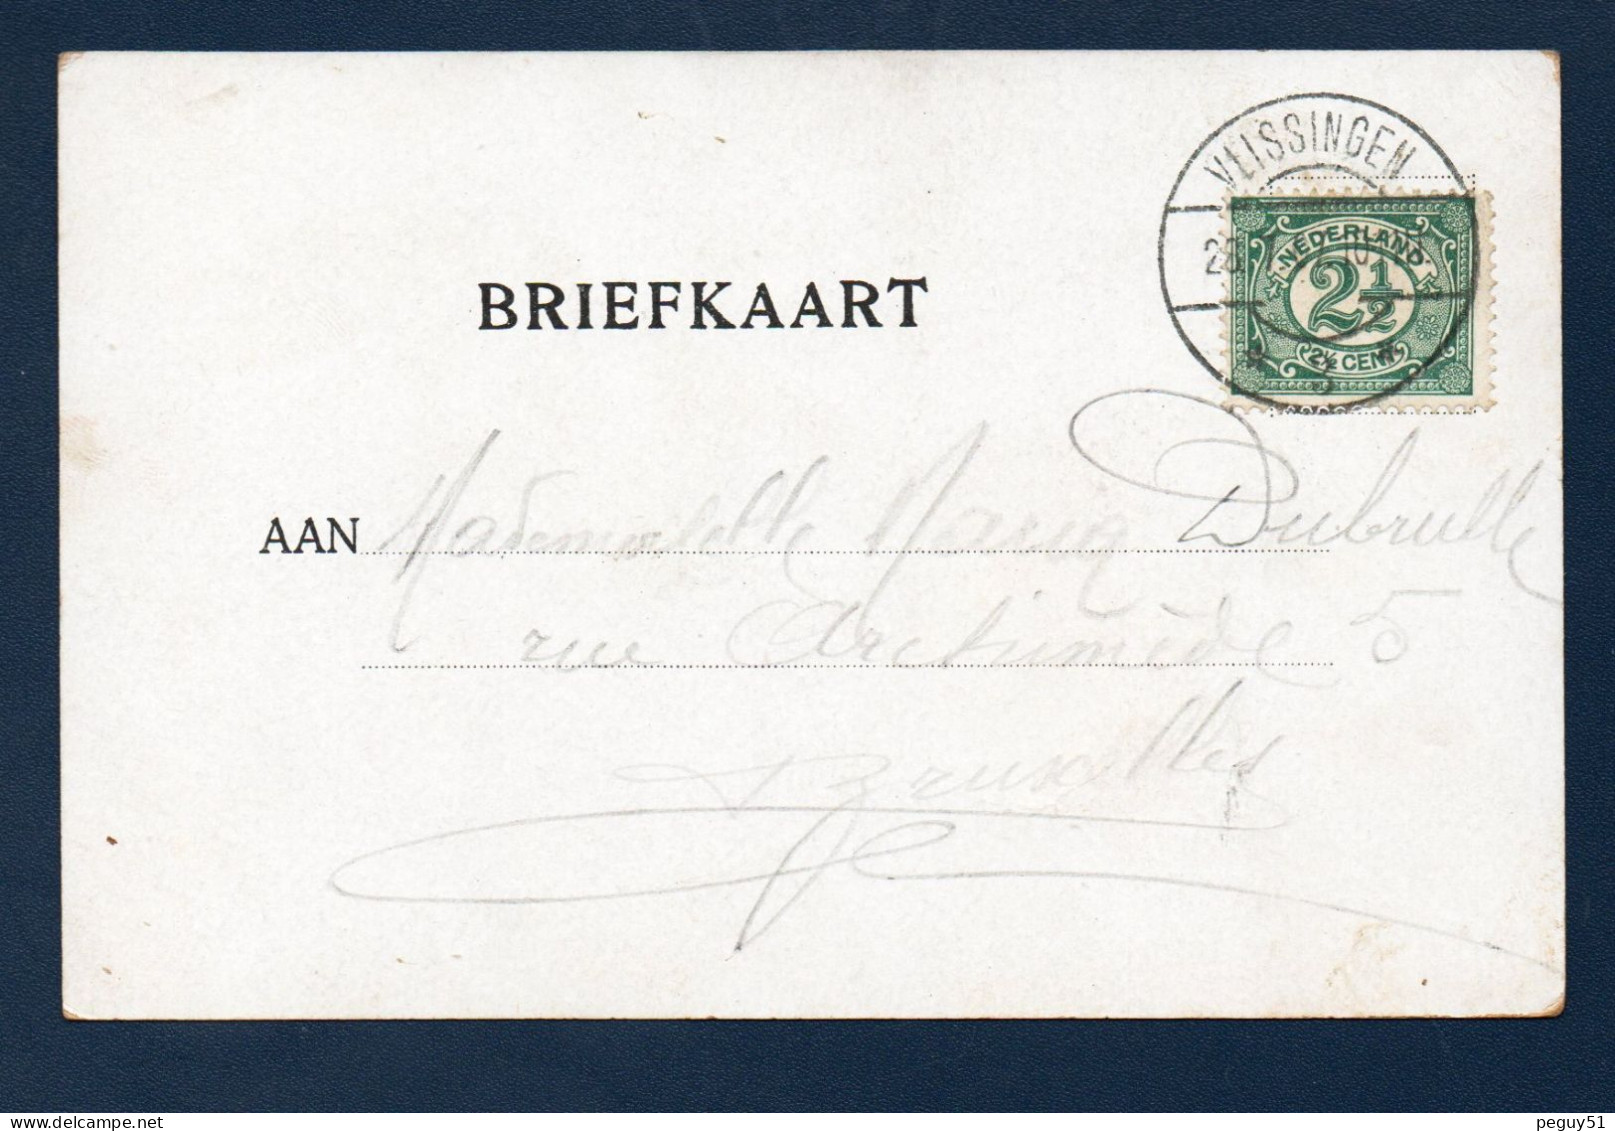 VLISSINGEN
NEDERLAND
2½
2½ CENT
BRIEFKAART
AAN Mademoiselle Dubrulle
rue Archimède 5
Bruxelles
delcampe.net
peguy51